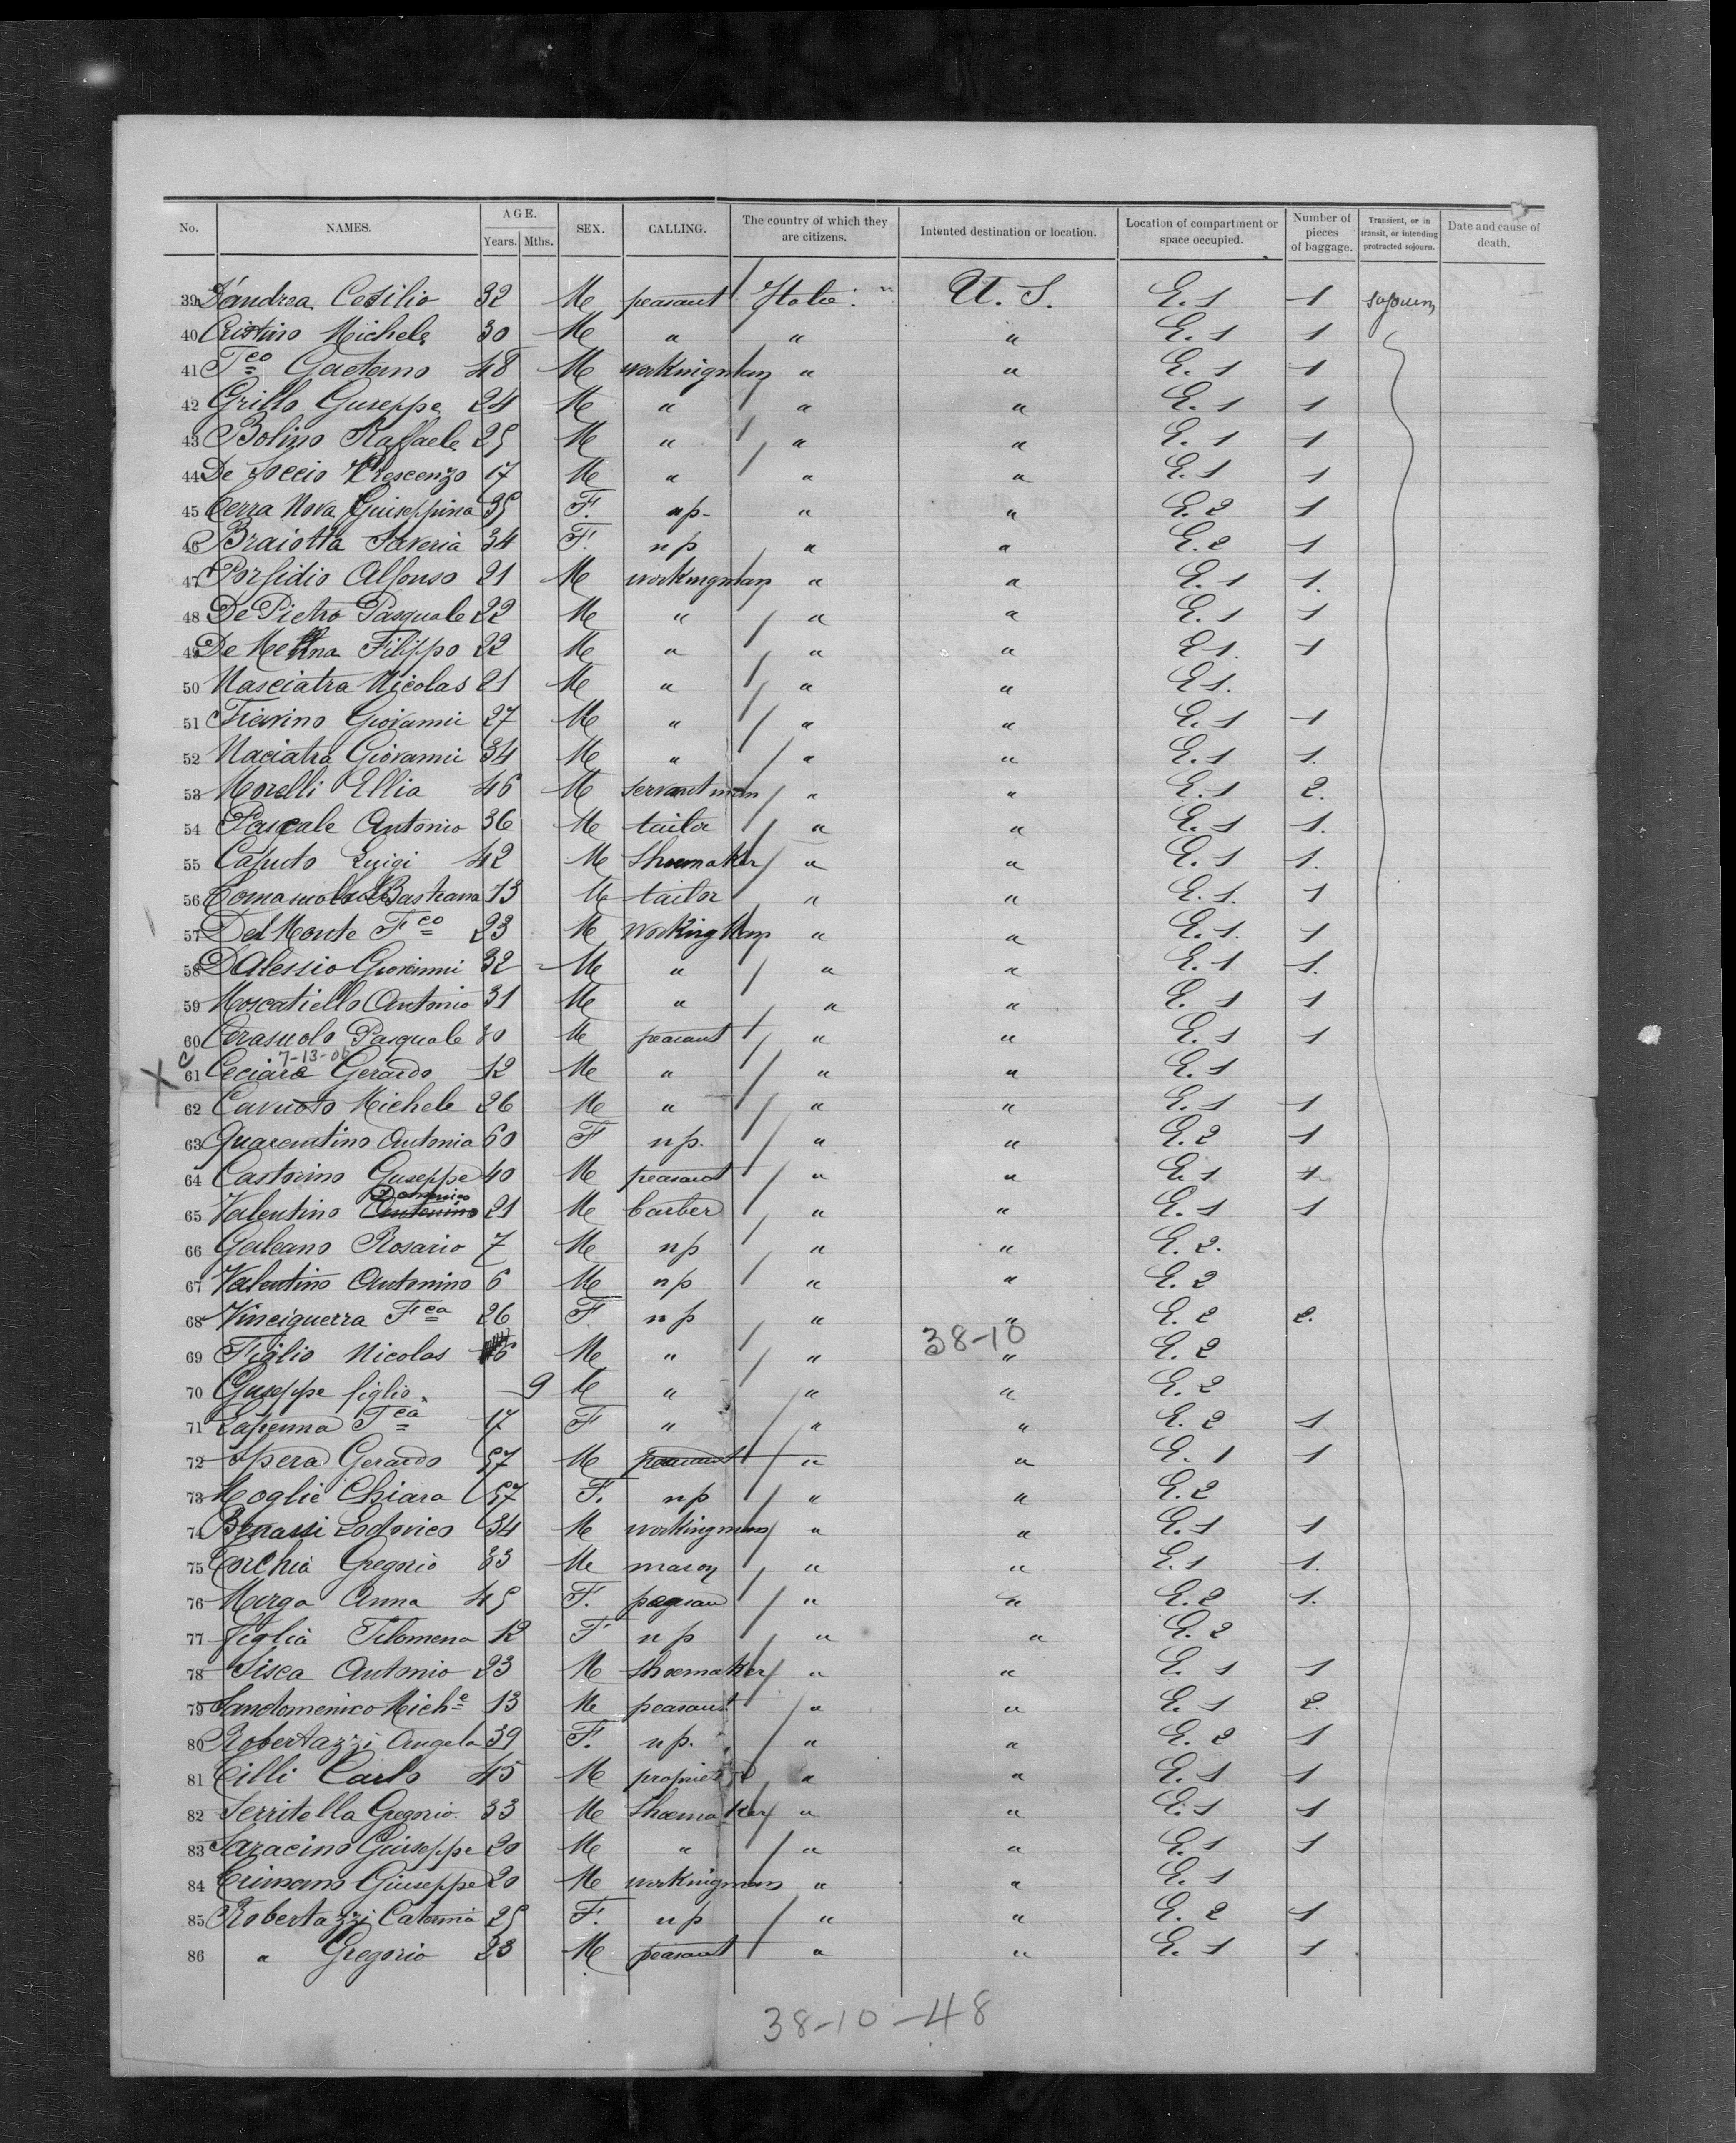 No. NAMES. AGE. Years. Mths. SEX. CALLING. The country of which they are citizens. Intented destination or location. Location of compartment or space occupied. Number of pieces of baggage. Transient, or in transit, or intending protracted sojourn. Date and cause of death.
39 D'andrea Cesilio 32 M peasant Italie " U. S. E. 1 1 sojourn
40 Cristino Michele 30 M " " " E. 1 1
41 Fco Gaetano 48 M workingman " " E. 1 1
42 Grillo Guseppe 24 M " " " E. 1 1
43 Bolino Raffaele 25 M " " " E. 1 1
44 De Joccio Crescenzo 17 M " " " E. 1 1
45 Cerra Nova Guiseppina 35 F. np- " " E. 2 1
46 Braiotta Saveria 34 F. np " " E. 2 1
47 Porfidio Alfonso 21 M workingman " " E. 1 1.
48 De Pietro Pasquale 22 M " " " E. 1 1
49 De Filippo 22 M " " " E 1. 1
50 Nasciatra Nicolas 21 M " " " E 1.
51 Giovanni 27 M " " " E. 1 1
52 Naciatra Giovanni 34 M " " " E. 1 1.
53 Morelli Ellia 46 M servant man " " E. 1 2.
54 Pascale Antonio 36 M tailor " " E. 1 1.
55 Caputo Luigi 42 M Shoemaker " " E. 1 1.
56 13 M tailor " " E. 1. 1
57 Del Monte Fco 23 M workingman " " E. 1. 1
58 D'Alessio Giovanni 32 M " " " E. 1 1.
59 Moscatiello Antonio 31 M " " " E. 1 1
60 Cerasuolo Pasquale 30 M peasant " " E. 1 1
7-13-06
X c 61 Ceciare Gerardo 12 M " " " E. 1
62 Cavuoto Michele 26 M " " " E. 1 1
63 Quarentino Antonia 60 F np. " " E. 2 1
64 Castorino Guseppe 40 M peasant " " E. 1 1
Domenico
65 Valentino Antonino 21 M barber " " E. 1 1
66 Galeano Rosario 7 M np " " E. 2.
67 Valentino Antonino 6 M np " " E. 2
68 Vinciguerra Fca 26 F np " " E. 2 2.
38-10
69 Figlio Nicolas 6 M " " " E. 2
70 Guseppe figlio 9 M " " " E. 2
71 Lapenna Fca 17 F " " " E. 2 1
72 Spera Gerardo 57 M peasant " " E. 1 1
73 Moglie Chiara 57 F. np " " E. 2
74 Benassi Lodovico 34 M workingman " " E. 1 1
75 Torchia Gregorio 33 M mason " " E. 1 1.
76 Marga Anna 45 F. " " E. 2 1.
77 figlia Filomena 12 F np " " E. 2
78 Sisca Antonio 23 M shoemaker " " E. 1 1
79 Sandomenico Miche 13 M peasant " " E. 1 2.
80 Robertazzi Angela 39 F. np. " " E. 2 1
81 Cilli Carlo 45 M " " E. 1 1
82 Territella Gregorio 33 M Shoemaker " " E. 1 1
83 Saracino Giuseppe 20 M " " " E. 1 1
84 Giuseppe 20 M workingman " " E. 1
85 Robertazzi 25 F. np " " E. 2 1
86 " Gregorio 23 M peasant " " E. 1 1
38-10-48